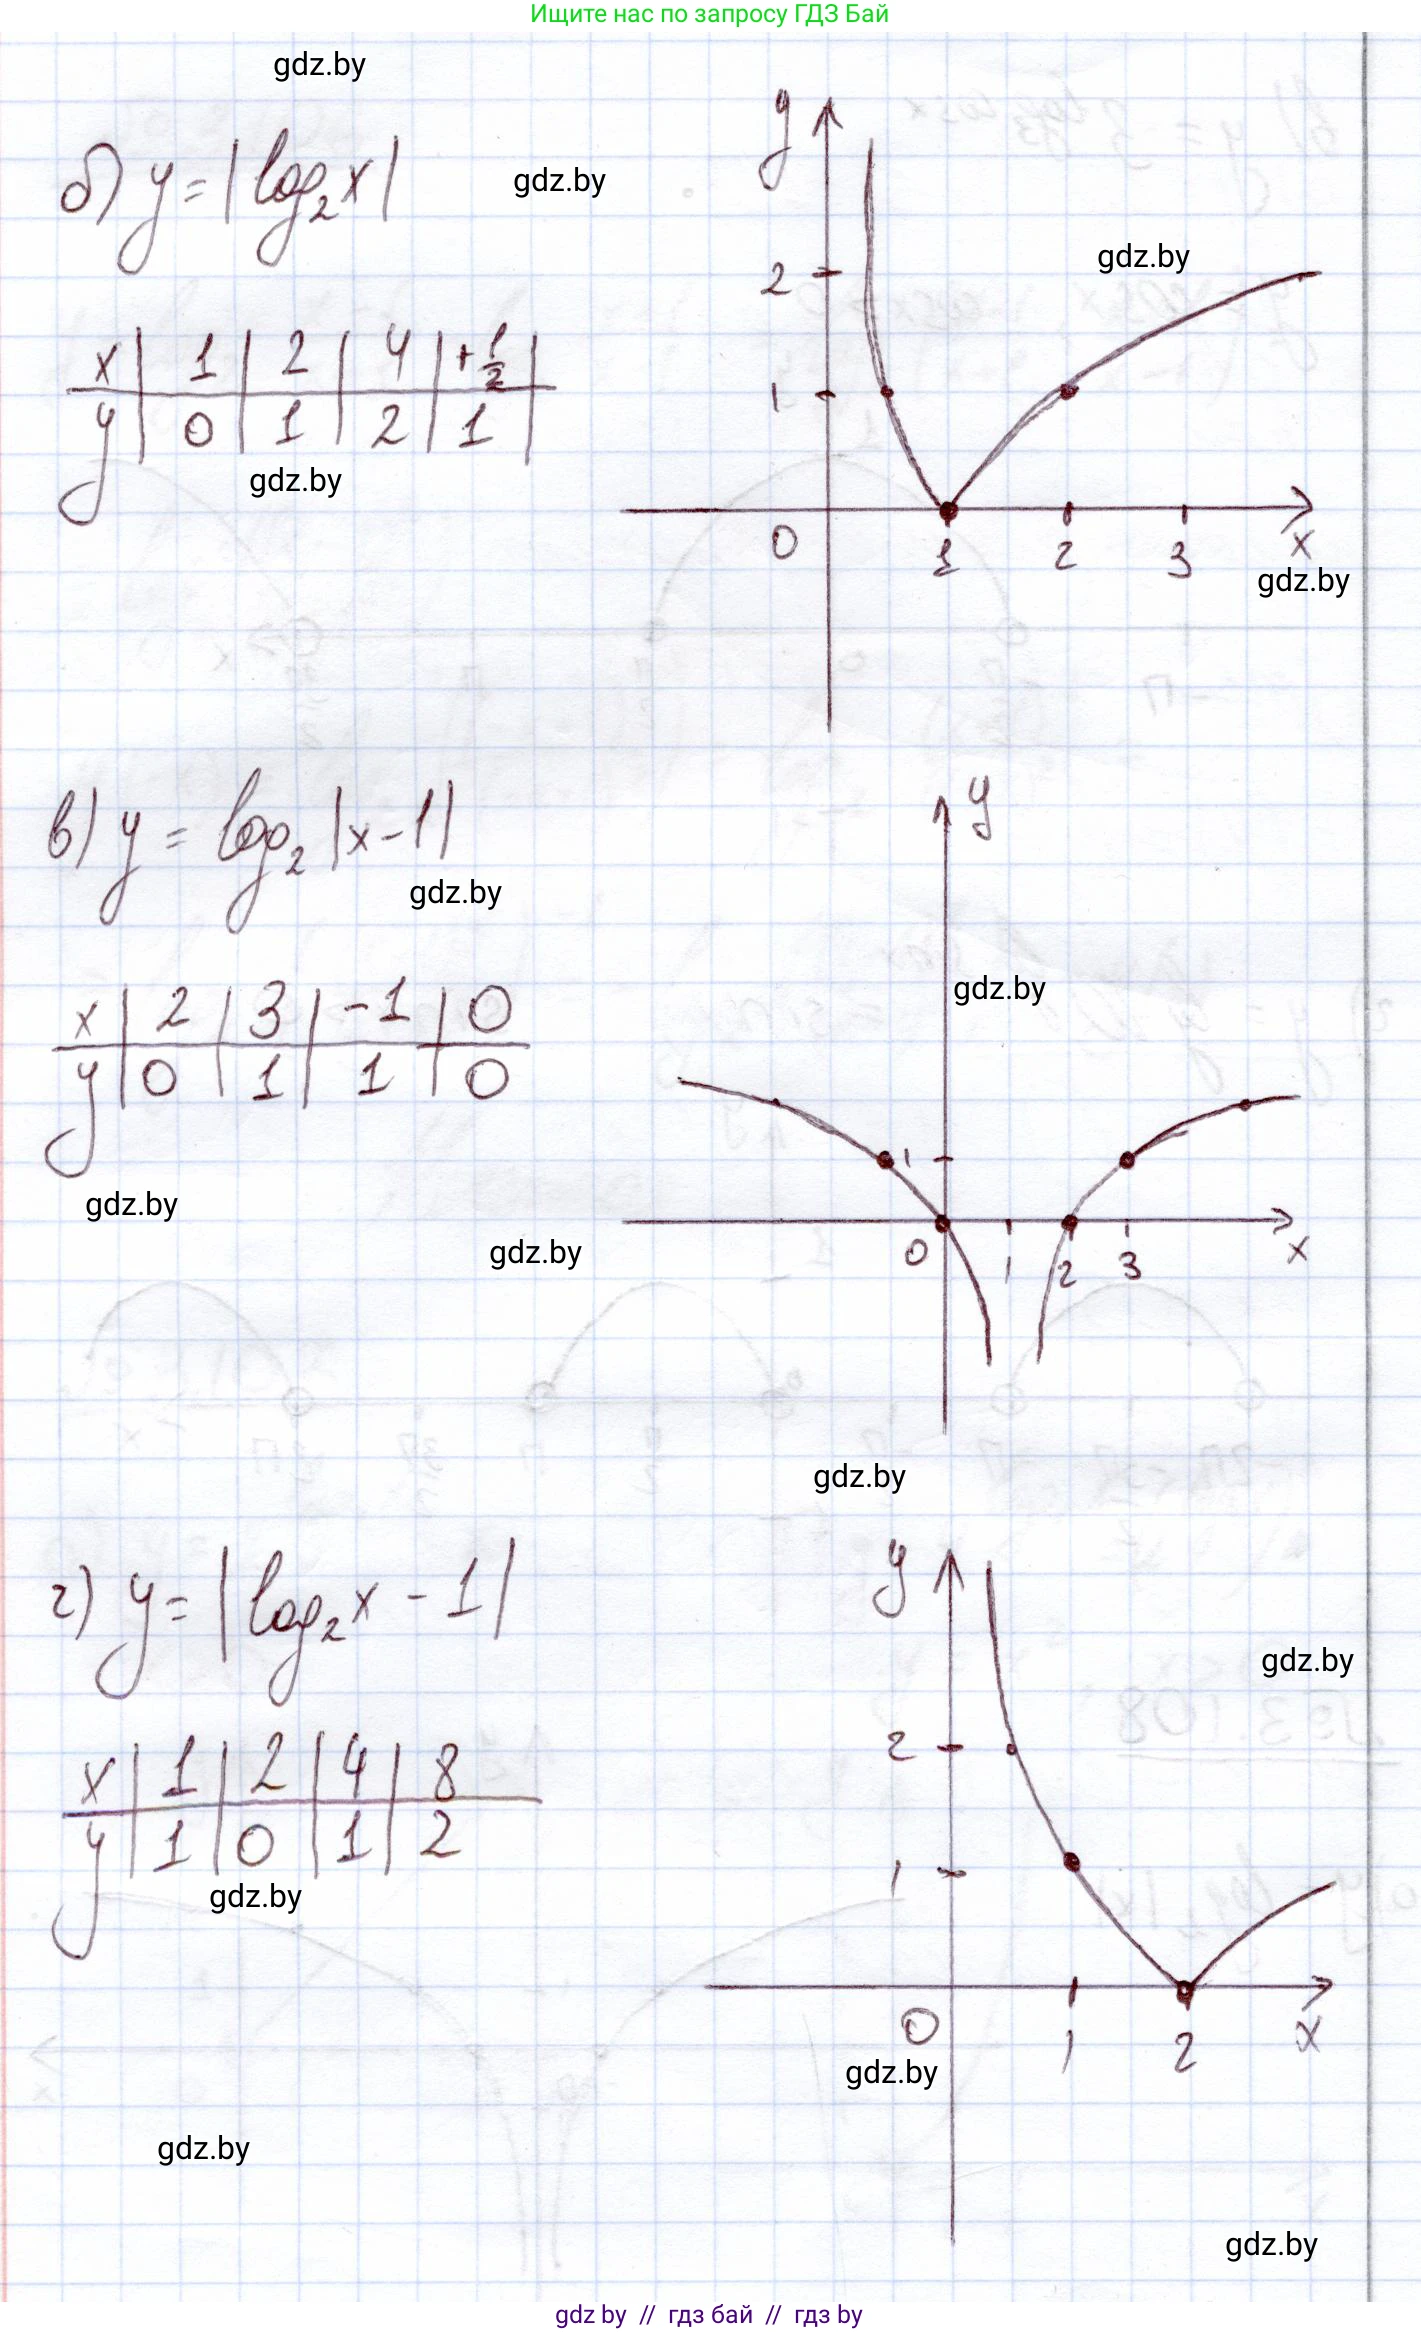 Ищите нас по запросу ГДЗ Бай
gdz.by
б) y = |log₂x|
gdz.by
y
gdz.by
2
1
x | 1 | 2 | 4 | +1/2 |
y | 0 | 1 | 2 | 1 |
gdz.by
0 1 2 3 x
gdz.by
в) y = log₂|x-1|
gdz.by
y
gdz.by
x | 2 | 3 | -1 | 0
y | 0 | 1 | 1 | 0
gdz.by
gdz.by
1
0 1 2 3 x
gdz.by
г) y = |log₂x - 1|
y
gdz.by
2
1
x | 1 | 2 | 4 | 8
y | 1 | 0 | 1 | 2
gdz.by
0 1 2 x
gdz.by
gdz.by
gdz.by
gdz by // гдз бай // гдз by